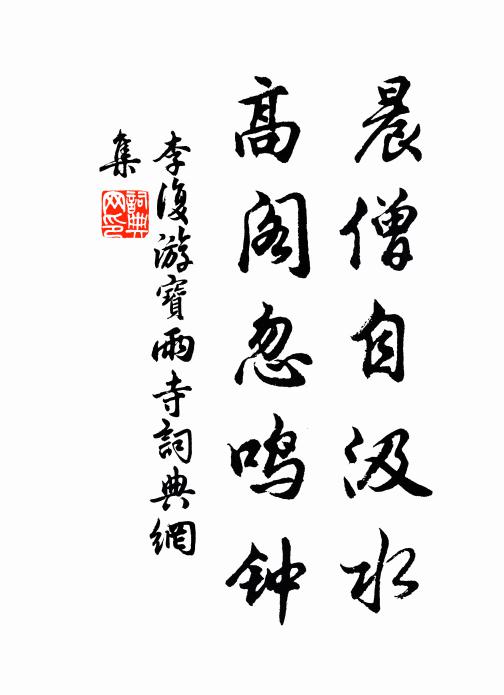 晨僧自汲水
高阁忽鸣钟
李復游寶雨寺詞典網
集
詞典
网印